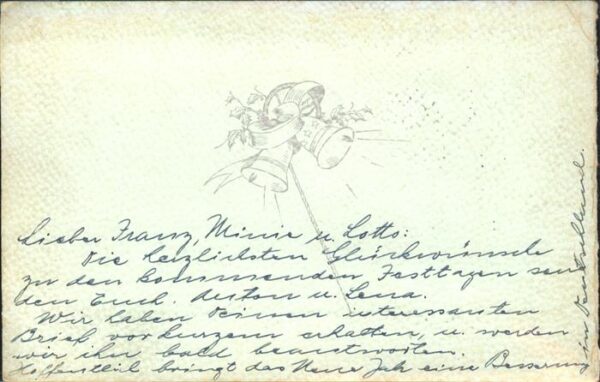 Lieber Franz, Minie u. Lotto:
Die herzlichsten Glückwünsche
zu den kommenden Festtagen sen
den Euch. Anton u. Lena.
Wir haben Deinen interessanten
Brief vor kurzem erhalten, u. werden
wir ihn bald beantworten.
Hoffentlich bringt das Neue Jahr eine Besserung
in Deutschland.